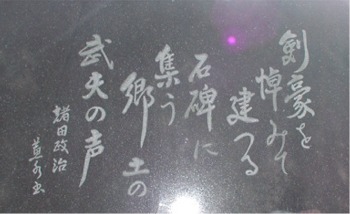 剣豪を
悼みて
建つる
石碑に
集う
郷土の
武夫の声
猪田政治
書